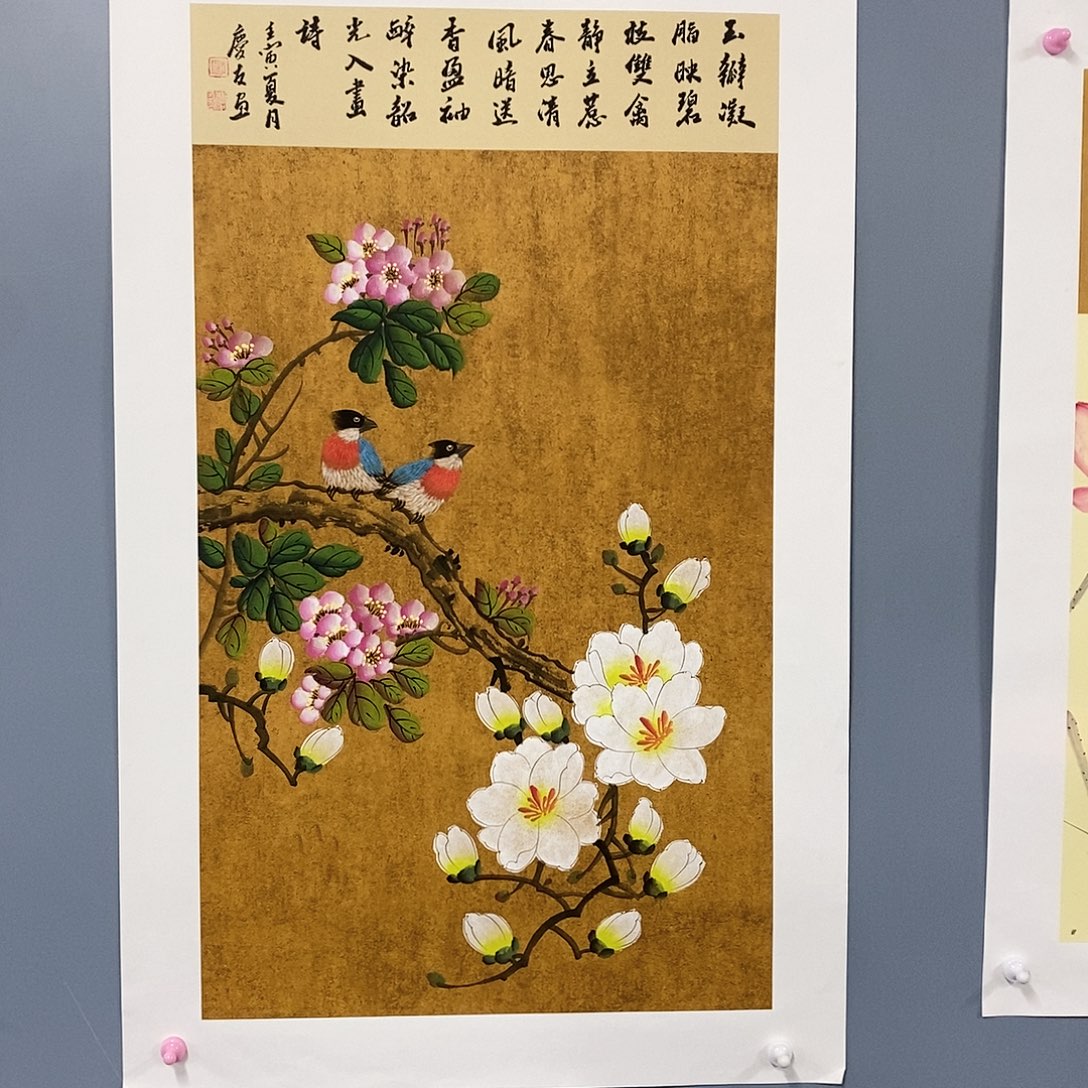 玉瓣凝
脂映碧
枝雙禽
靜立惹
春思清
風暗送
香盈袖
醉染韶
光入畫
詩
壬寅夏月
慶友畫